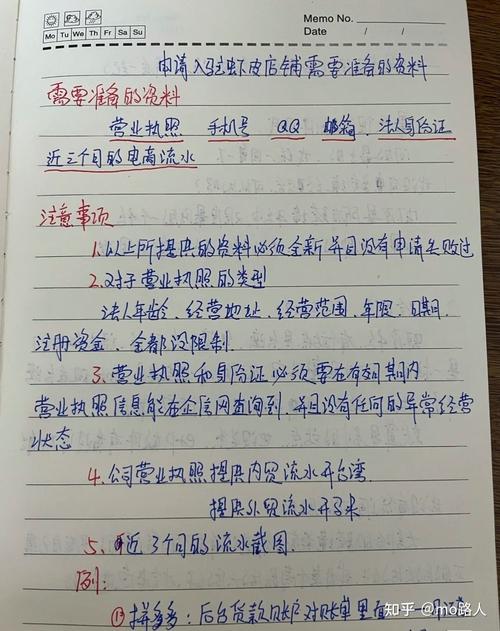 Memo No.
Mo Tu We Th Fr Sa Su
Date / /
申请入驻虾皮店铺需要准备的资料
需要准备的资料
营业执照 手机号 QQ 邮箱、法人身份证
近三个月的电商流水
注意事项
1.以上所提供的资料必须全新并且没有申请失败过
2.对于营业执照的类型
法人年龄、经营地址、经营范围、年限、日期、
注册资金、全都没限制
3、营业执照和身份证必须要在有效期内
营业执照信息能在企信网查询到,并且没有任何的异常经营
状态
4.公司营业执照提供内贸流水开台湾
提供外贸流水开马来
5、近3个月的流水截图
例:
① 拼多多:后台货款账户对账单里面
知乎 @mo路人